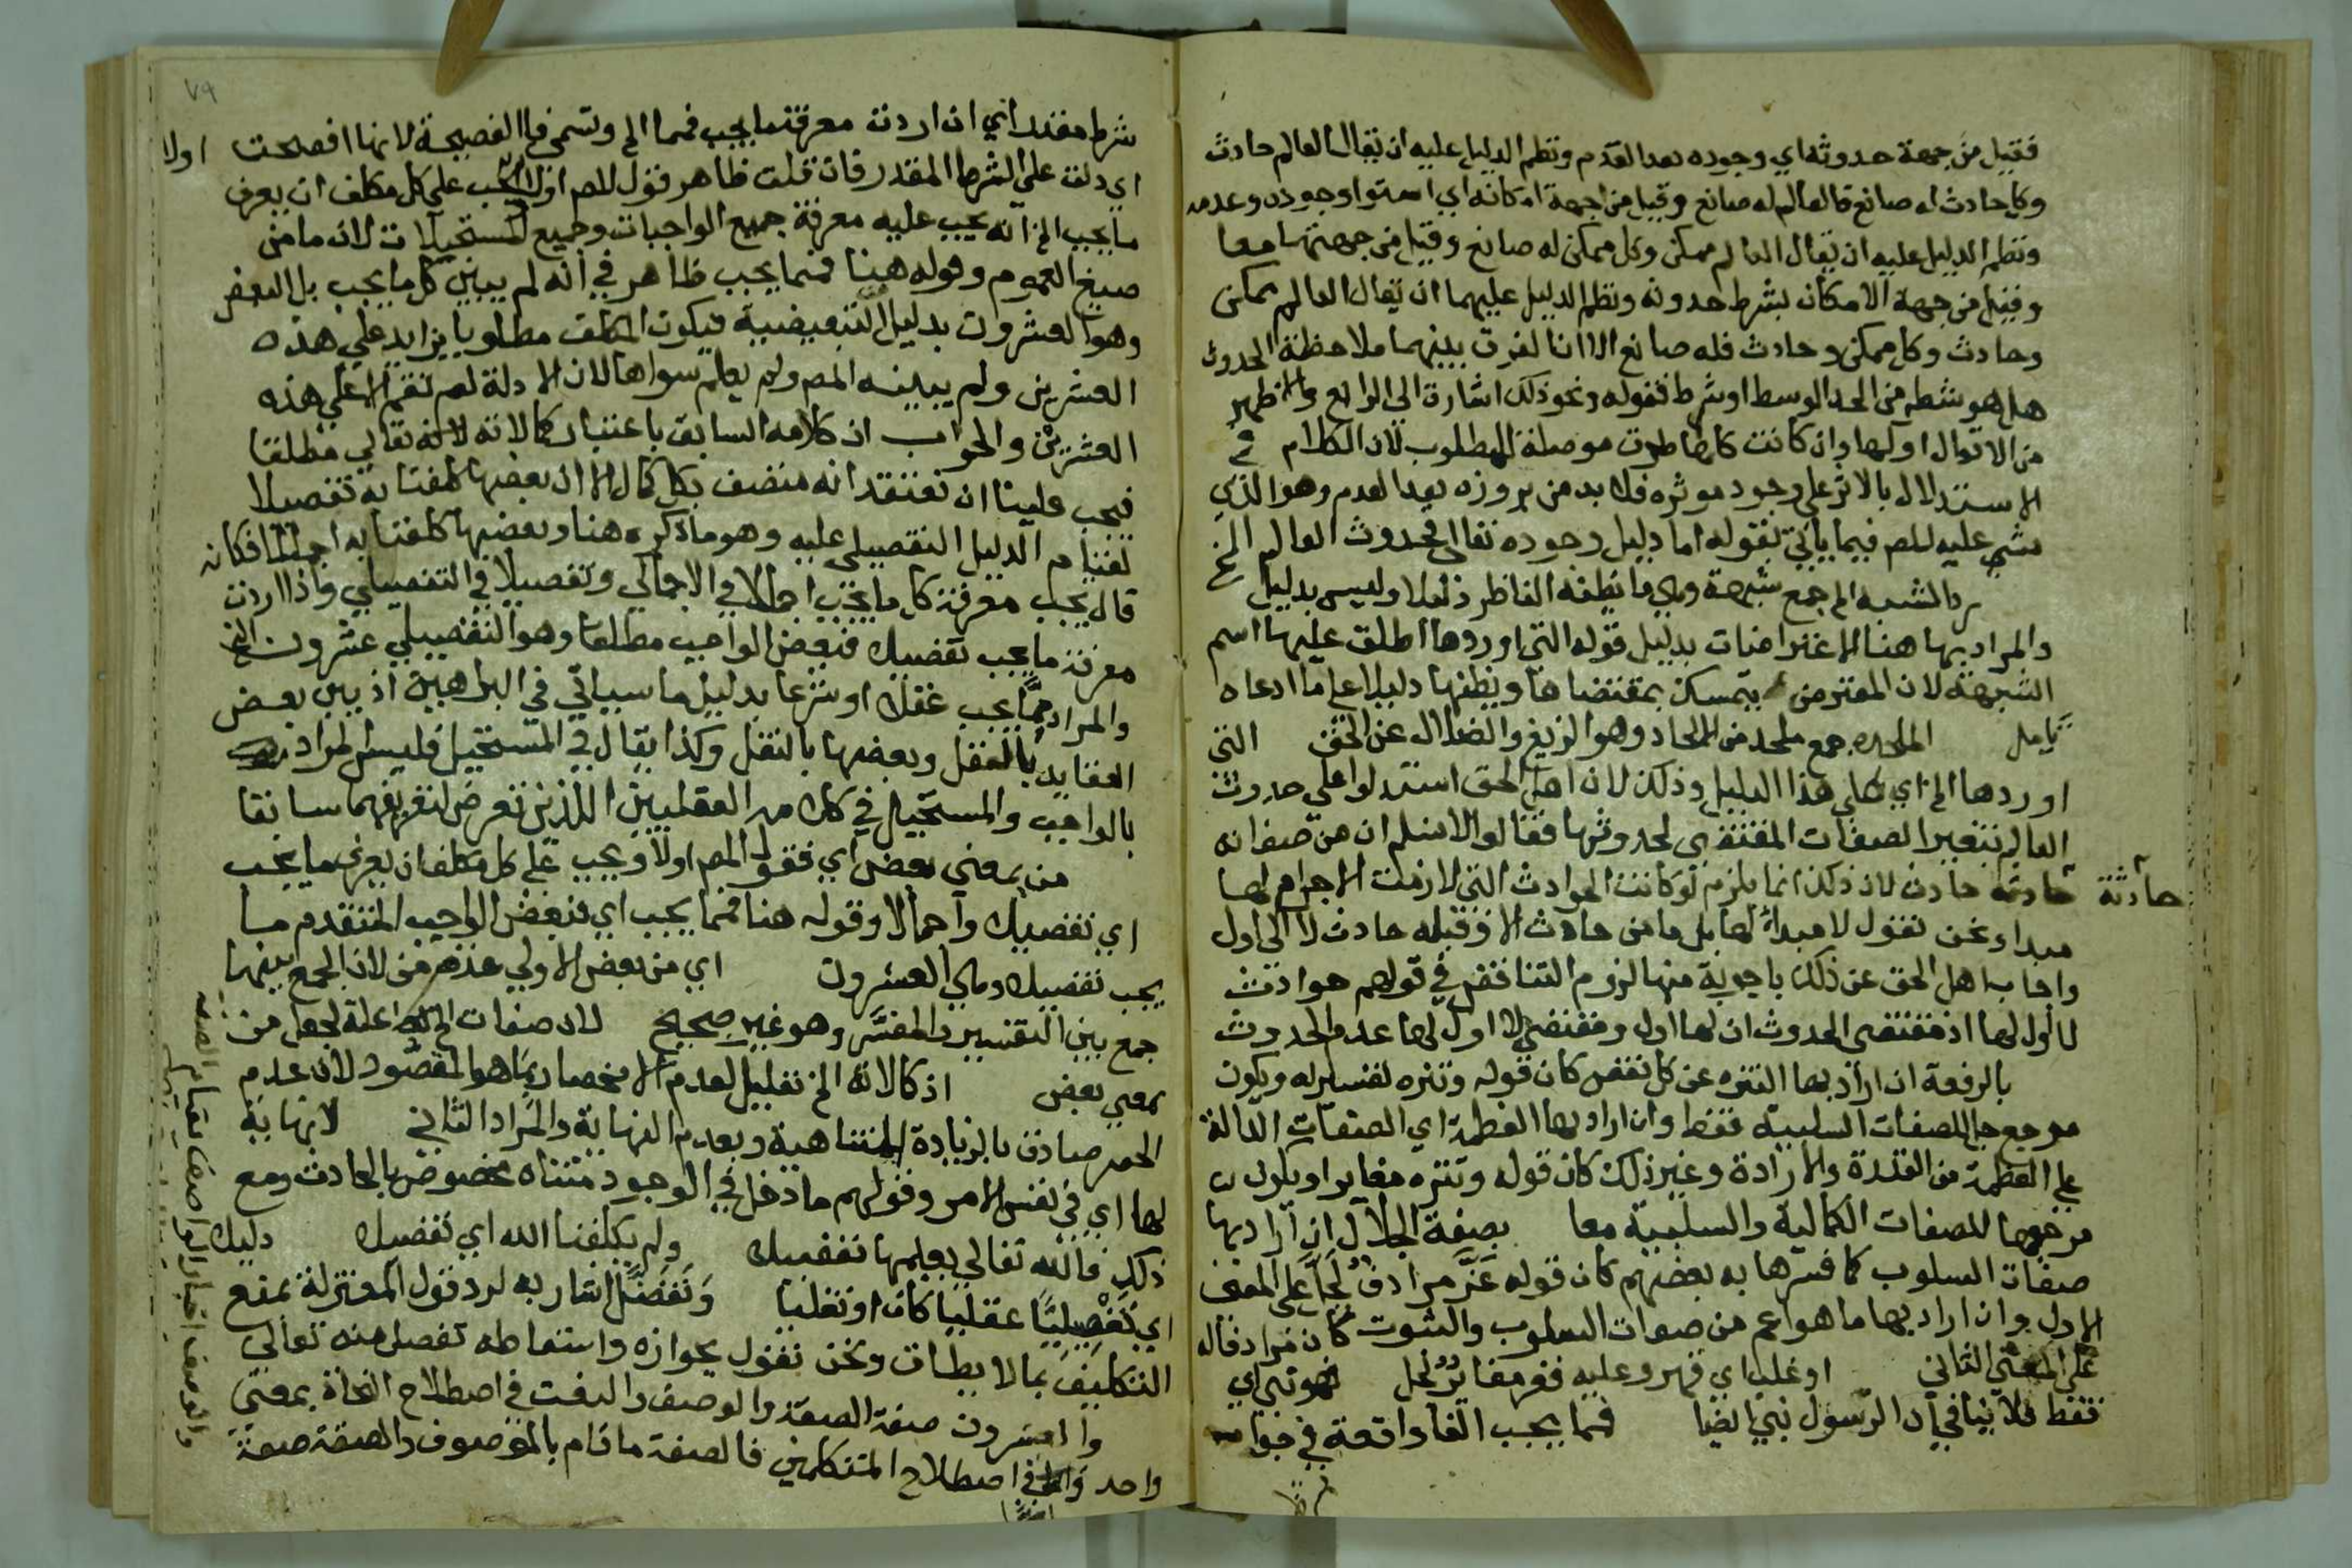 فقيل من جهة حدوثه اي وجوده بعد العدم ونظم الدليل عليه ان يقال العالم حادث
وكل حادث له صانع فالعالم له صانع وقيل من جهة امكانه اي استوا وجوده وعدمه
ونظم الدليل عليه ان يقال العالم ممكن وكل ممكن له صانع وقيل من جهتهما معا
وقيل من جهة الامكان بشرط حدوثه ونظم الدليل عليهما ان يقال العالم ممكن
وحادث وكل ممكن وحادث فله صانع الا ان الفرق بينهما ملاحظة الحدوث
هل هو شطر من الحد الوسط او شرط فقوله ونحو ذلك اشارة الي الرابع والاظهر
من الاقوال اولها وان كانت كلها طرق موصلة للمطلوب لان الكلام في
الاستدلال بالاثر علي وجود موثره فلا بد من بروزه بعد العدم وهو الذي
مشي عليه المص فيما ياتي بقوله اما دليل وجوده تعالي فحدوث العالم الخ
الشبه الخ جمع شبهة وهي ما يظنه الناظر دليلا وليس بدليل
والمراد بها هنا الاعتراضات بدليل قوله التي اوردها اطلق عليها اسم
الشبهة لان المعترض يتمسك بمقتضاها ويظنها دليلا علي ما ادعاه
تامل الملحده جمع ملحد من الالحاد وهو الزيغ والضلال عن الحق التي
اوردها الخ اي علي هذا الدليل وذلك لان اهل الحق استدلوا علي حدوث
العالم بتغير الصفات المقتضي لحدوثها فقالوا لا نسلم ان من صفاته
حادثة حادث لان ذلك انما يلزم لو كانت الحوادث التي لازمت الاجرام لها
حادثة
مبدا ونحن نقول لا مبدا لها بل ما من حادث الا وقبله حادث لا الي اول
واجاب اهل الحق عن ذلك باجوبة منها لزوم التناقض في قولهم حوادث
لا اول لها اذ مقتضي الحدوث ان لها اول ومقتضي لا اول لها عدم الحدوث
بالرفعة ان اراد بها التنزه عن كل نقص كان قوله وتنزه تفسير له ويكون
مرجعها للصفات السلبية فقط وان اراد بها العظمة اي الصفات الدالة
علي العظمة من القدرة والارادة وغير ذلك كان قوله وتنزه مغايرا ويكون
مرجعها للصفات الكمالية والسلبية معا بصفة الجلال ان اراد بها
صفات السلوب كما فسرها به بعضهم كان قوله عز مرادف لجل علي المعني
الاول وان اراد بها ما هو اعم من صفات السلوب والثبوت كان مرادفا له
علي المعني الثاني او غلب اي قهر وعليه فهو مغاير لجل نبي اي
فقط فلا ينافي ان الرسول نبي ايضا فما يجب الفا واقعة في جواب
٧٩
شرط مقدر اي ان اردت معرفة ما يجب فمما الخ وتسمي فا الفصيحة لانها افصحت
اي دلت علي الشرط المقدر فان قلت ظاهر قول المص اولا يجب علي كل مكلف ان يعرف
اولا
ما يجب الخ انه يجب عليه معرفة جميع الواجبات وجميع المستحيلات لان ما من
صيغ العموم وقوله هنا فمما يجب ظاهر في انه لم يبين كل ما يجب بل البعض
وهو العشرون بدليل التبعيضية فيكون المكلف مطلوبا بزايد علي هذه
العشرين ولم يبينه المص ولم يعلم سواها لان الادلة لم تقم الا علي هذه
العشرين والجواب ان كلامه السابق باعتبار كمالاته تعالي مطلقا
فيجب علينا ان نعتقد انه متصف بكل كمال الا ان بعضها كلفنا به تفصيلا
لقيام الدليل التفصيلي عليه وهو ما ذكره هنا وبعضها كلفنا به اجمالا فكانه
قال يجب معرفة كل ما يجب اجمالا في الاجمالي وتفصيلا في التفصيلي واذا اردت
معرفة ما يجب تفصيلا فبعض الواجب مطلقا وهو التفصيلي عشرون الخ
والمراد مما يجب عقلا او شرعا بدليل ما سياتي في البراهين اذ بين بعض
العقايد بالعقل وبعضها بالنقل وكذا يقال في المستحيل فليس المراد
بالواجب والمستحيل في كلامه العقليين اللذين تعرض لتعريفهما سابقا
من بمعني بعض اي فقول المص اولا ويجب علي كل مكلف ان يعرف ما يجب
اي تفصيلا واجمالا وقوله هنا فمما يجب اي فبعض الواجب المتقدم ما
يجب تفصيلا وهي العشرون اي من بعض الاولي حذف من لان الجمع بينهما
جمع بين التفسير والمفسر وهو غير صحيح لان صفات الخ علة لجعل من
بمعني بعض اذ كمالاته الخ تعليل لعدم الانحصار بما هو المقصود لان عدم
الحصر صادق بالزيادة المتناهية وبعدم النهاية والمراد الثاني لا نهاية
لها اي في نفس الامر وقولهم ما دخل في الوجود متناه مخصوص بالحادث ومع
ذلك فالله تعالي يعلمها تفصيلا ولم يكلفنا الله اي تفصيلا دليلا
اي تفصيليا عقليا كان او نقليا وتفضل اشار به لرد قول المعتزلة بمنع
التكليف بما لا يطاق ونحن نقول بجوازه واسقاطه تفضل منه تعالي
والعشرون صفة الصفة والوصف والنعت في اصطلاح النحاة بمعني
واحد واما في اصطلاح المتكلمين فالصفة ما قام بالموصوف والصفة صفة